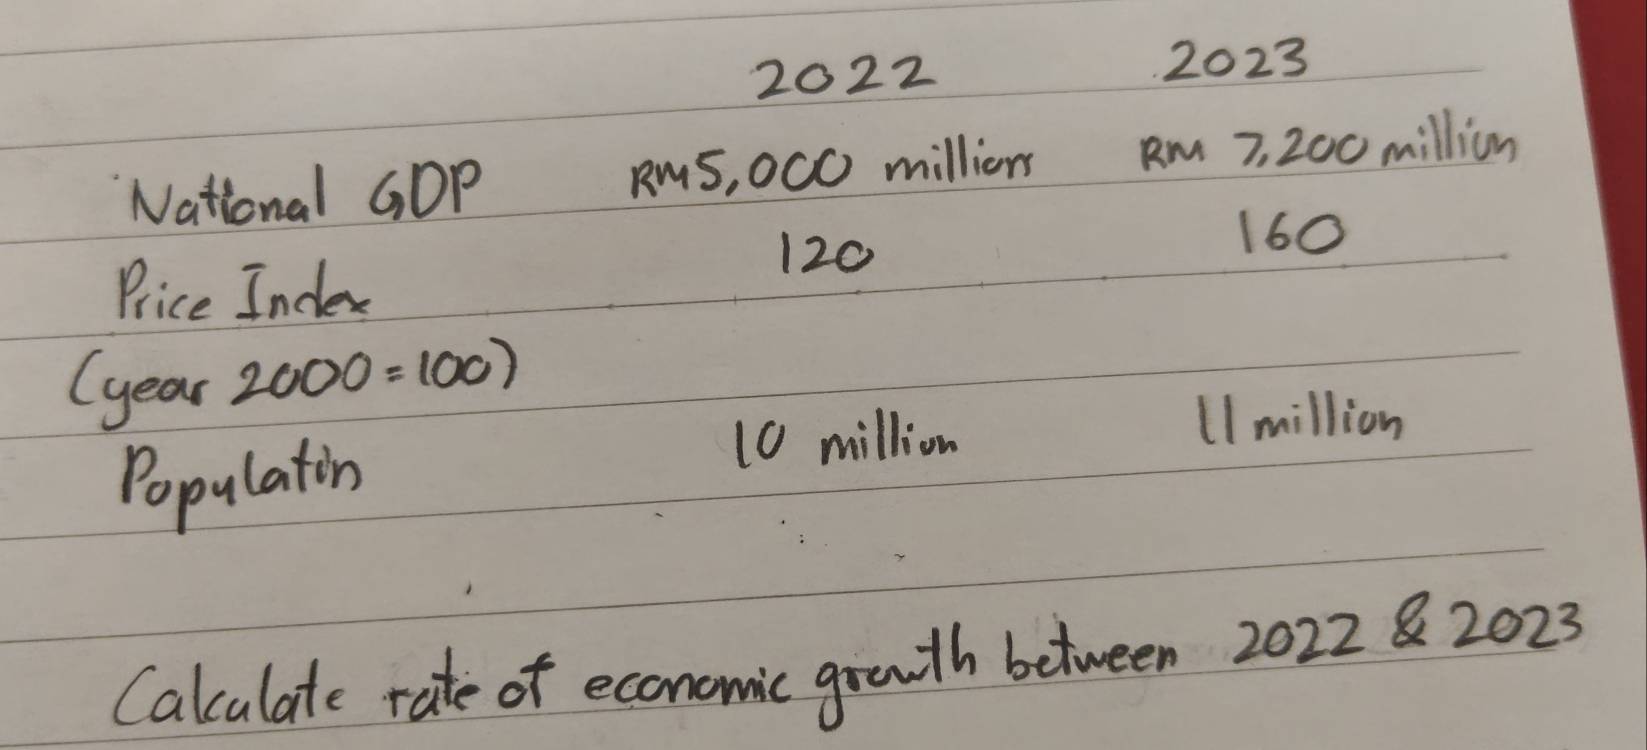 2022 2023
National GDP RM5,000 million RM 7,200 million
Price Index 120 160
(year 2000=100)
Populatin 10 million 11 million
Calculate rate of economic growth between 2022 & 2023